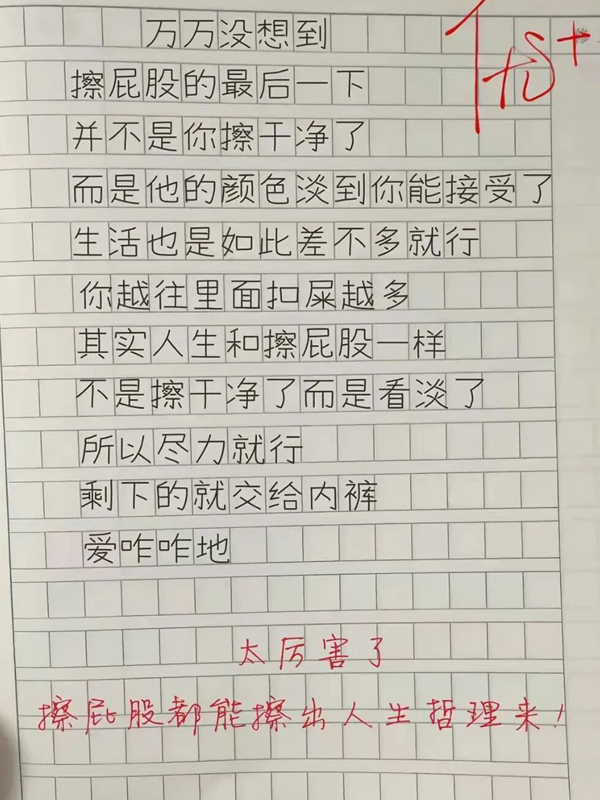 万万没想到
优+
擦屁股的最后一下
并不是你擦干净了
而是他的颜色淡到你能接受了
生活也是如此差不多就行
你越往里面扣屎越多
其实人生和擦屁股一样
不是擦干净了而是看淡了
所以尽力就行
剩下的就交给内裤
爱咋咋地
太厉害了
擦屁股都能擦出人生哲理来!